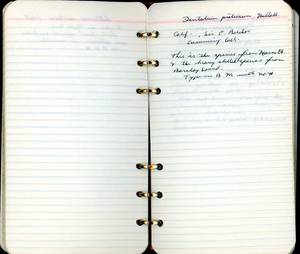 Dentalium pretiosum Nuttall
Calif. , Sir E. Belcher
Cuming Coll.
This is the species from Neeah B
& the heavy shelled species from
Barclay Sound.
Type in B M with no x